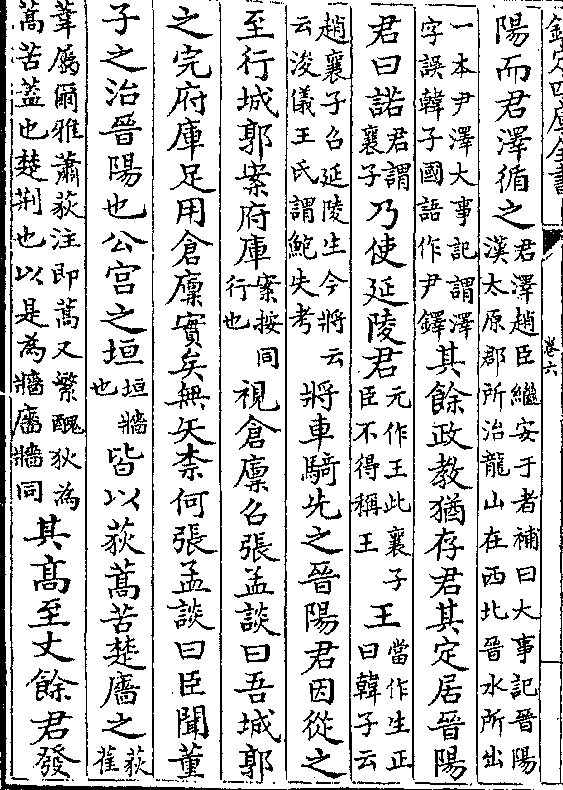 欽定四庫全書
卷六
陽而君澤循之君澤趙臣繼安于者補曰大事記晉陽漢太原郡所治龍山在西北晉水所出
一本尹澤大事記謂澤字誤韓子國語作尹鐸其餘政教猶存君其定居晉陽
君曰諾君謂襄子乃使延陵君元作王此襄子臣不得稱王王當作生正曰韓子云
趙襄子召延陵生今將云云浚儀王氏謂鮑失考將車騎先之晉陽君因從之
至行城郭案府庫案按同行也視倉廩召張孟談曰吾城郭
之完府庫足用倉廩實矣無矢柰何張孟談曰臣聞董
子之治晉陽也公宮之垣垣牆也皆以荻蒿苫楚廧之荻萑
葦屬爾雅蕭荻注即蒿又繁醜狄為蒿苫蓋也楚荆也以是為牆廧牆同其高至丈餘君發